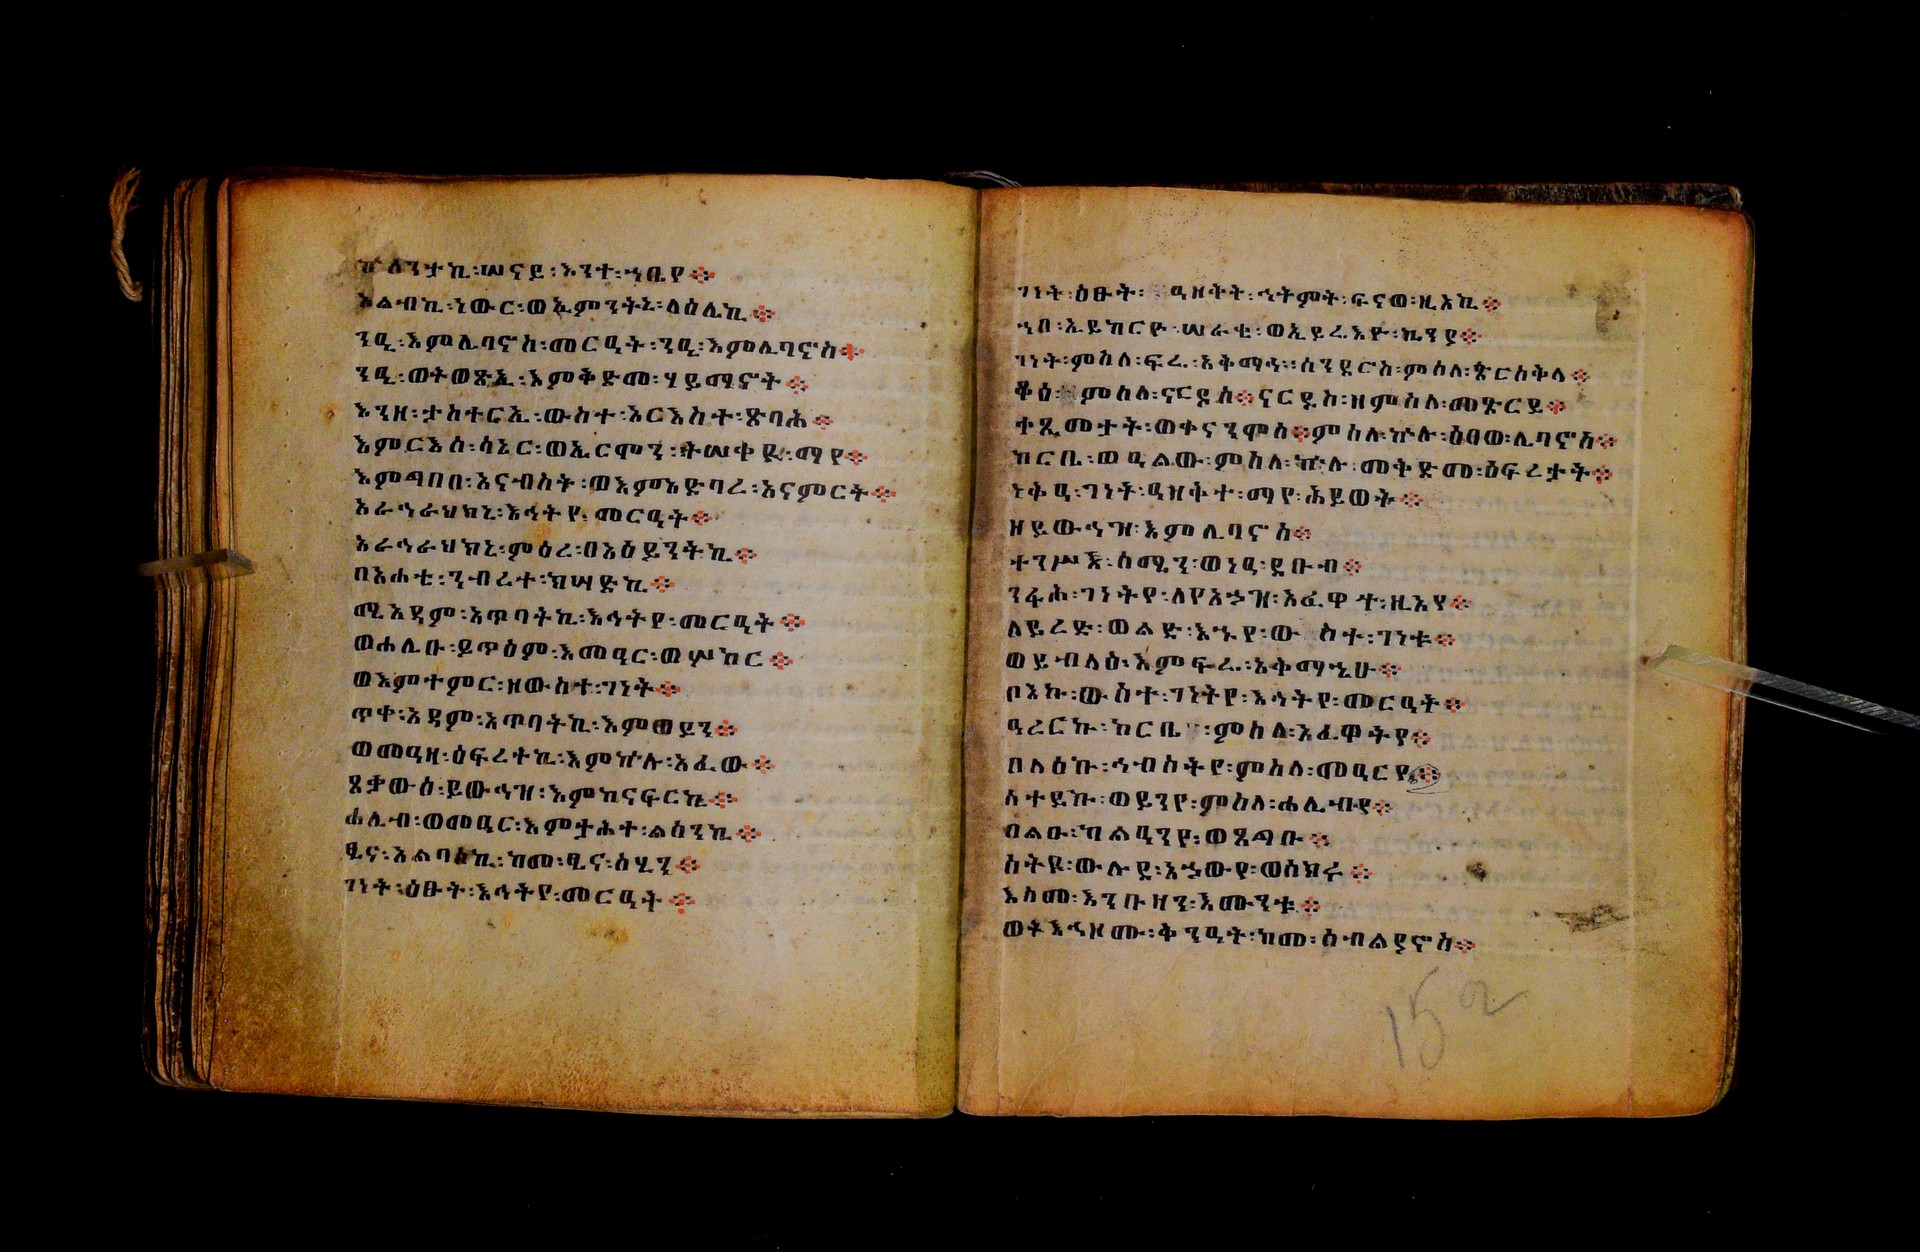 ኵለንታኪ፡ሠናይ፡እንተ፡ኀቤየ፨
አልብኪ፡ነውር፡ወኢምንትኒ፡ላዕሌኪ፨
ንዒ፡እምሊባኖስ፡መርዓት፡ንዒ፡እምሊባኖስ፨
ንዒ፡ወትወጽኢ፡እምቅድመ፡ሃይማኖት፨
እንዘ፡ታስተርኢ፡ውስተ፡እርእስት፡ጽባሕ፨
እምርእሰ፡ሳኔር፡ወኤርሞን፡ትሠቀዪ፡ማየ፨
እምግበበ፡አናብስት፡ወእምአድባረ፡አናምርት፨
አራኅራህክኒ፡እኅትየ፡መርዓት፨
አራኅራህክኒ፡ምዕረ፡በአዕይንትኪ፨
በአሐቲ፡ንብረተ፡ክሣድኪ፨
ሚአዳም፡አጥባትኪ፡እኅትየ፡መርዓት፨
ወሐሊቡ፡ይጥዕም፡እመዓር፡ወሦከር፨
ወእምተምር፡ዘውስተ፡ገነት፨
ጥቀ፡አዳም፡አጥባትኪ፡እምወይን፨
ወመዓዛ፡ዕፍረትኪ፡እምኵሉ፡አፈው፨
ጸቃውዕ፡ይውኅዝ፡እምከናፍርኪ፨
ሐሊብ፡ወመዓር፡እምታሕተ፡ልሳንኪ፨
ፄና፡አልባስኪ፡ከመ፡ፄና፡ስሂን፨
ገነት፡ዕፁት፡እኅትየ፡መርዓት፨
ገነት፡ዕፁት፡ ዓዘቅት፡ኅትምት፡ፍናወ፡ዚአኪ፨
ኀበ፡ኢይከርዮ፡ሠራቂ፡ወኢይሬእዮ፡ኬንያ፨
ገነት፡ምስለ፡ፍሬ፡አቅማሕ፡ሰንዱርስ፡ምስለ፡ጵርስቅላ፨
ቆዕ፡ ምስለ፡ናርዱስ፨ናርዱስ፡ዘምስለ፡መጽርይ፨
ቀጺመታት፡ወቀናንሞስ፨ምስለ፡ኵሉ፡ዕፀወ፡ሊባኖስ፨
ከርቤ፡ወዓልው፡ምስለ፡ኵሉ፡መቅድመ፡ዕፍረታት፨
ነቅዓ፡ገነት፡ዓዘቅተ፡ማየ፡ሕይወት፨
ዘይውኅዝ፡እምሊባኖስ፨
ተንሥእ፡ሰሜን፡ወነዓ፡ደቡብ፨
ንፋሕ፡ገነትየ፡ለየአኃዝ፡አፈዋተ፡ዚአየ፨
ለይረድ፡ወልድ፡እኁየ፡ው ስተ፡ገነቱ፨
ወይብላዕ፡እምፍሬ፡አቅማኂሁ፨
ቦእኩ፡ውስተ፡ገነትየ፡እኅትየ፡መርዓት፨
ዓረርኩ፡ከርቤ ፡ምስለ፡አፈዋትየ፨
በላዕኩ፡ኅብስትየ፡ምስለ፡መዓርየ፨
ሰተይኩ፡ወይንየ፡ምስለ፡ሐሊብየ፨
ብልዑ፡ካልዓንየ፡ወጸግቡ፨
ስትዩ፡ውሉደ፡አኃውየ፡ወስክሩ፨
እስመ፡እንቡዛን፡እሙንቱ፨
ወትእኅዞሙ፡ቅንዓት፡ከመ፡ሰብልያኖስ፨
152